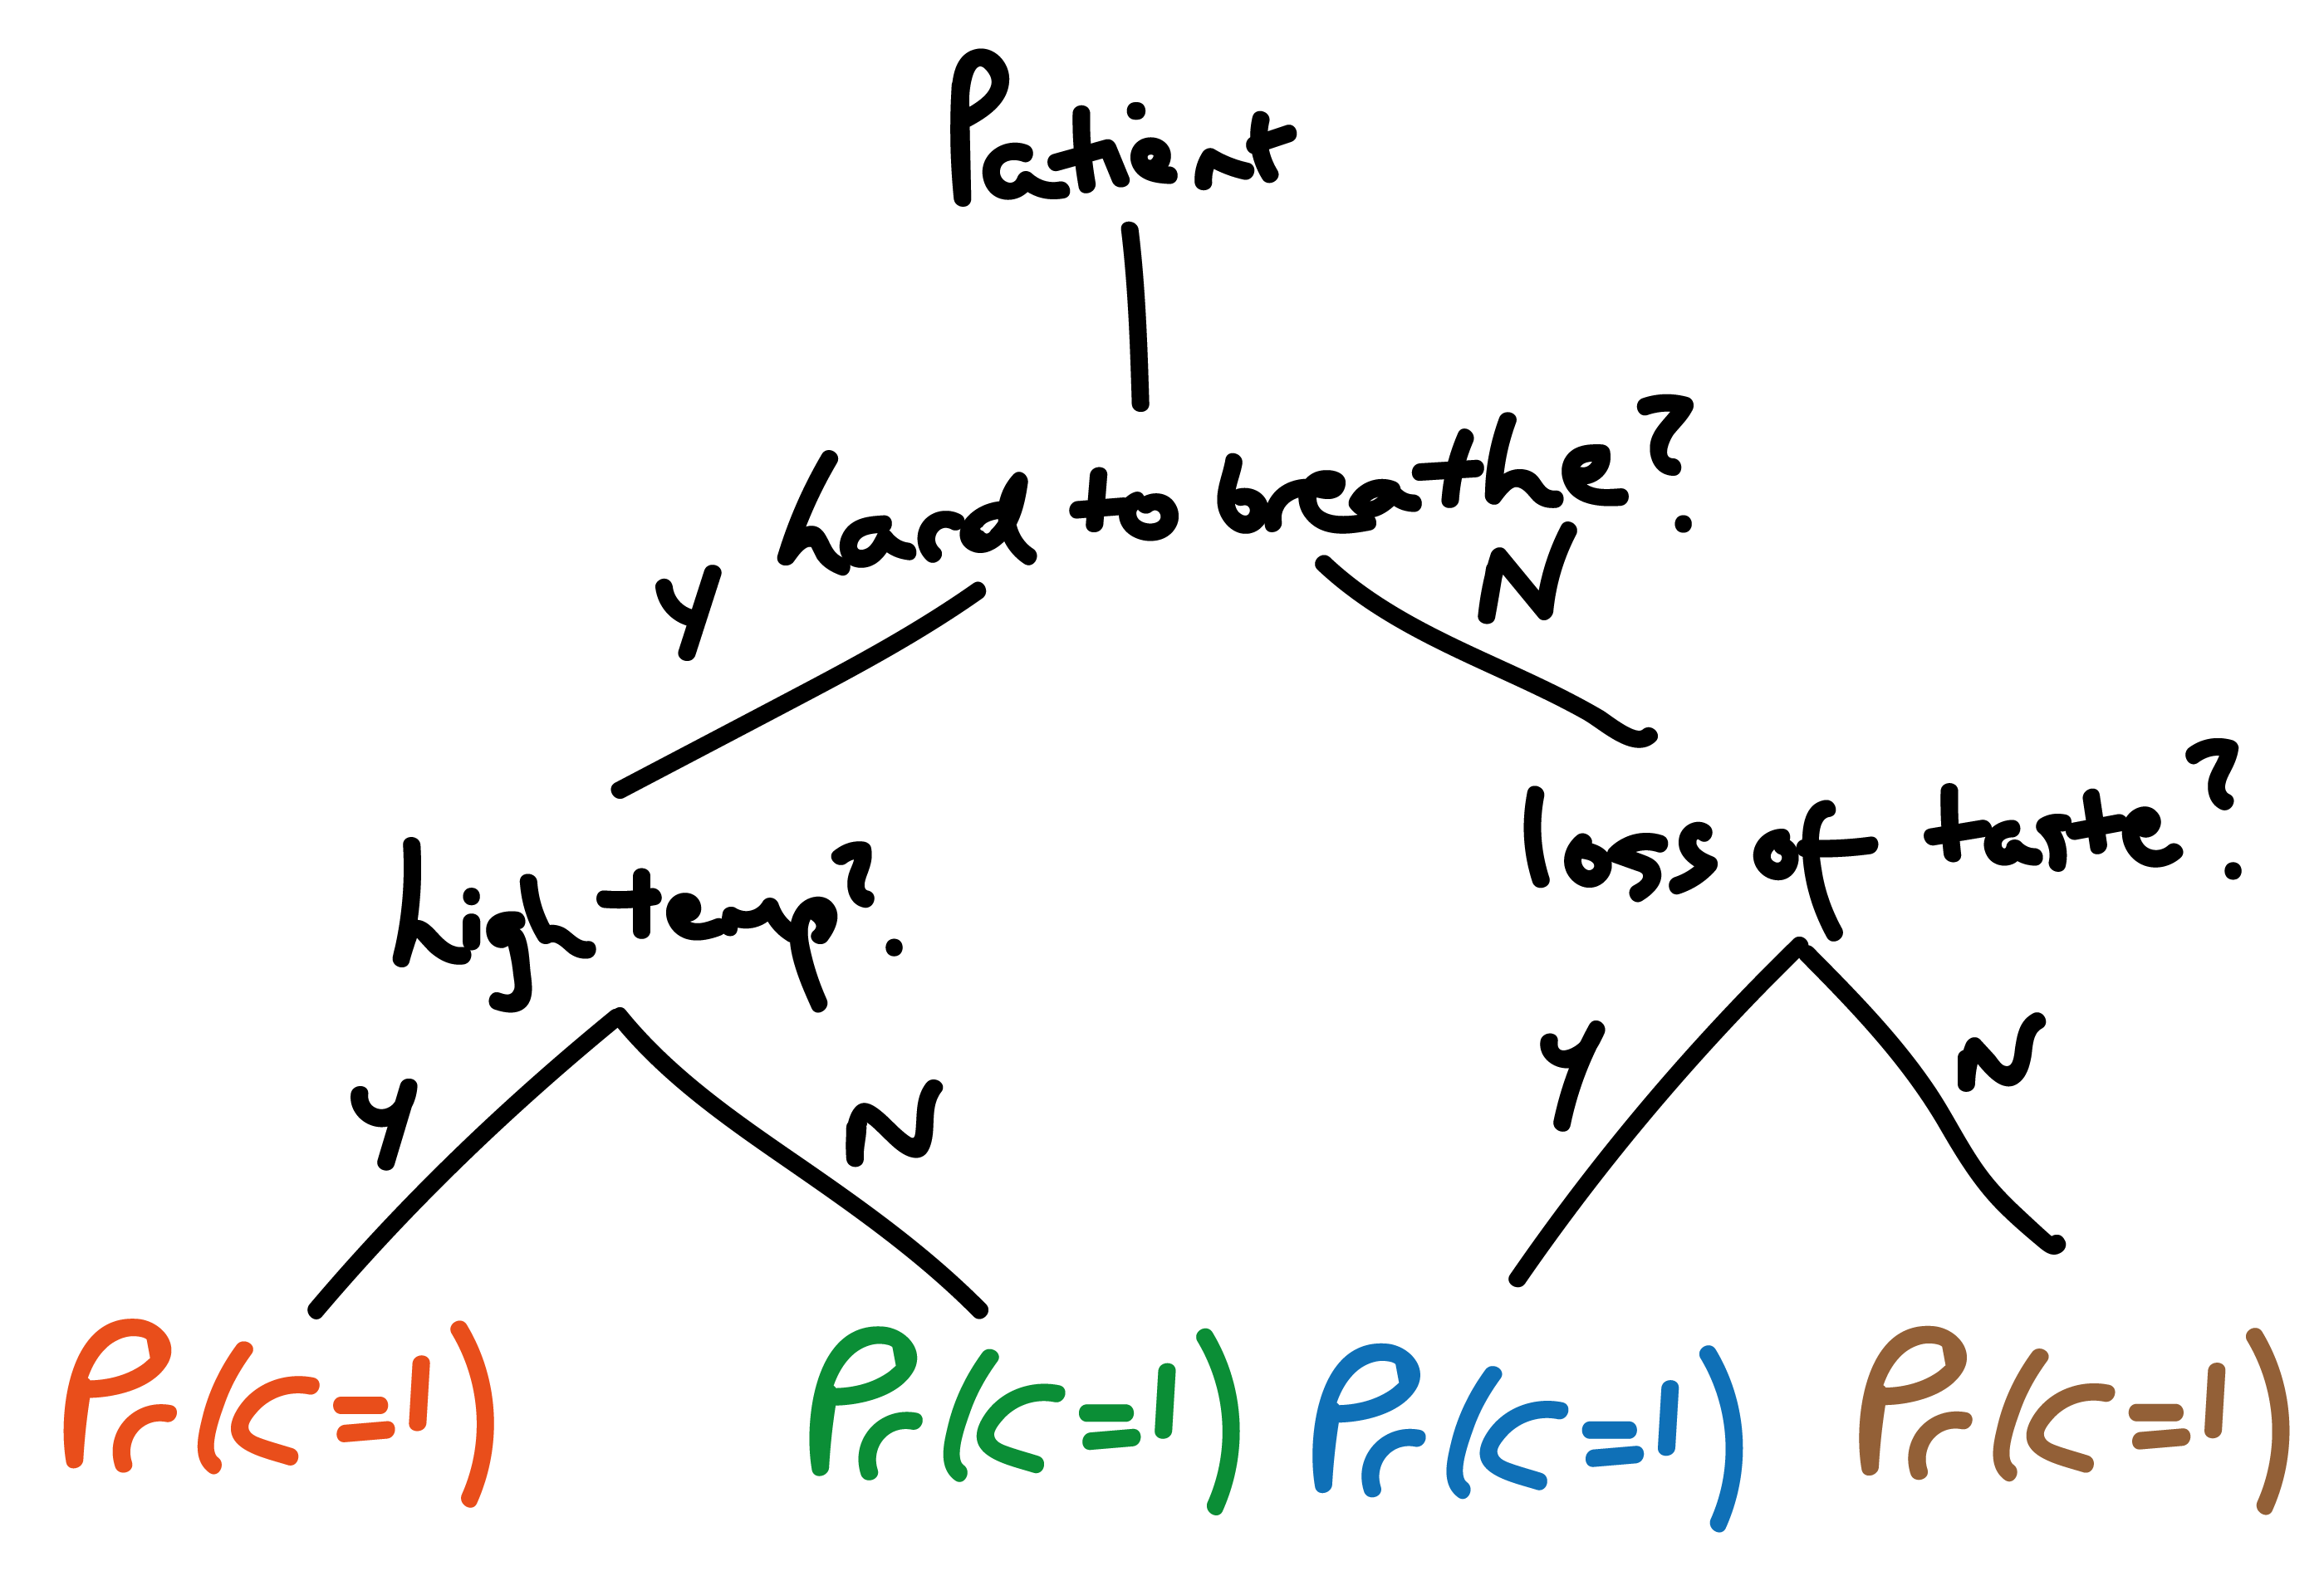 Patient
hard to breathe?
Y
N
high temp?
loss of taste?
Y
N
Y
N
Pr(C=1)
Pr(C=1)
Pr(C=1)
Pr(C=1)